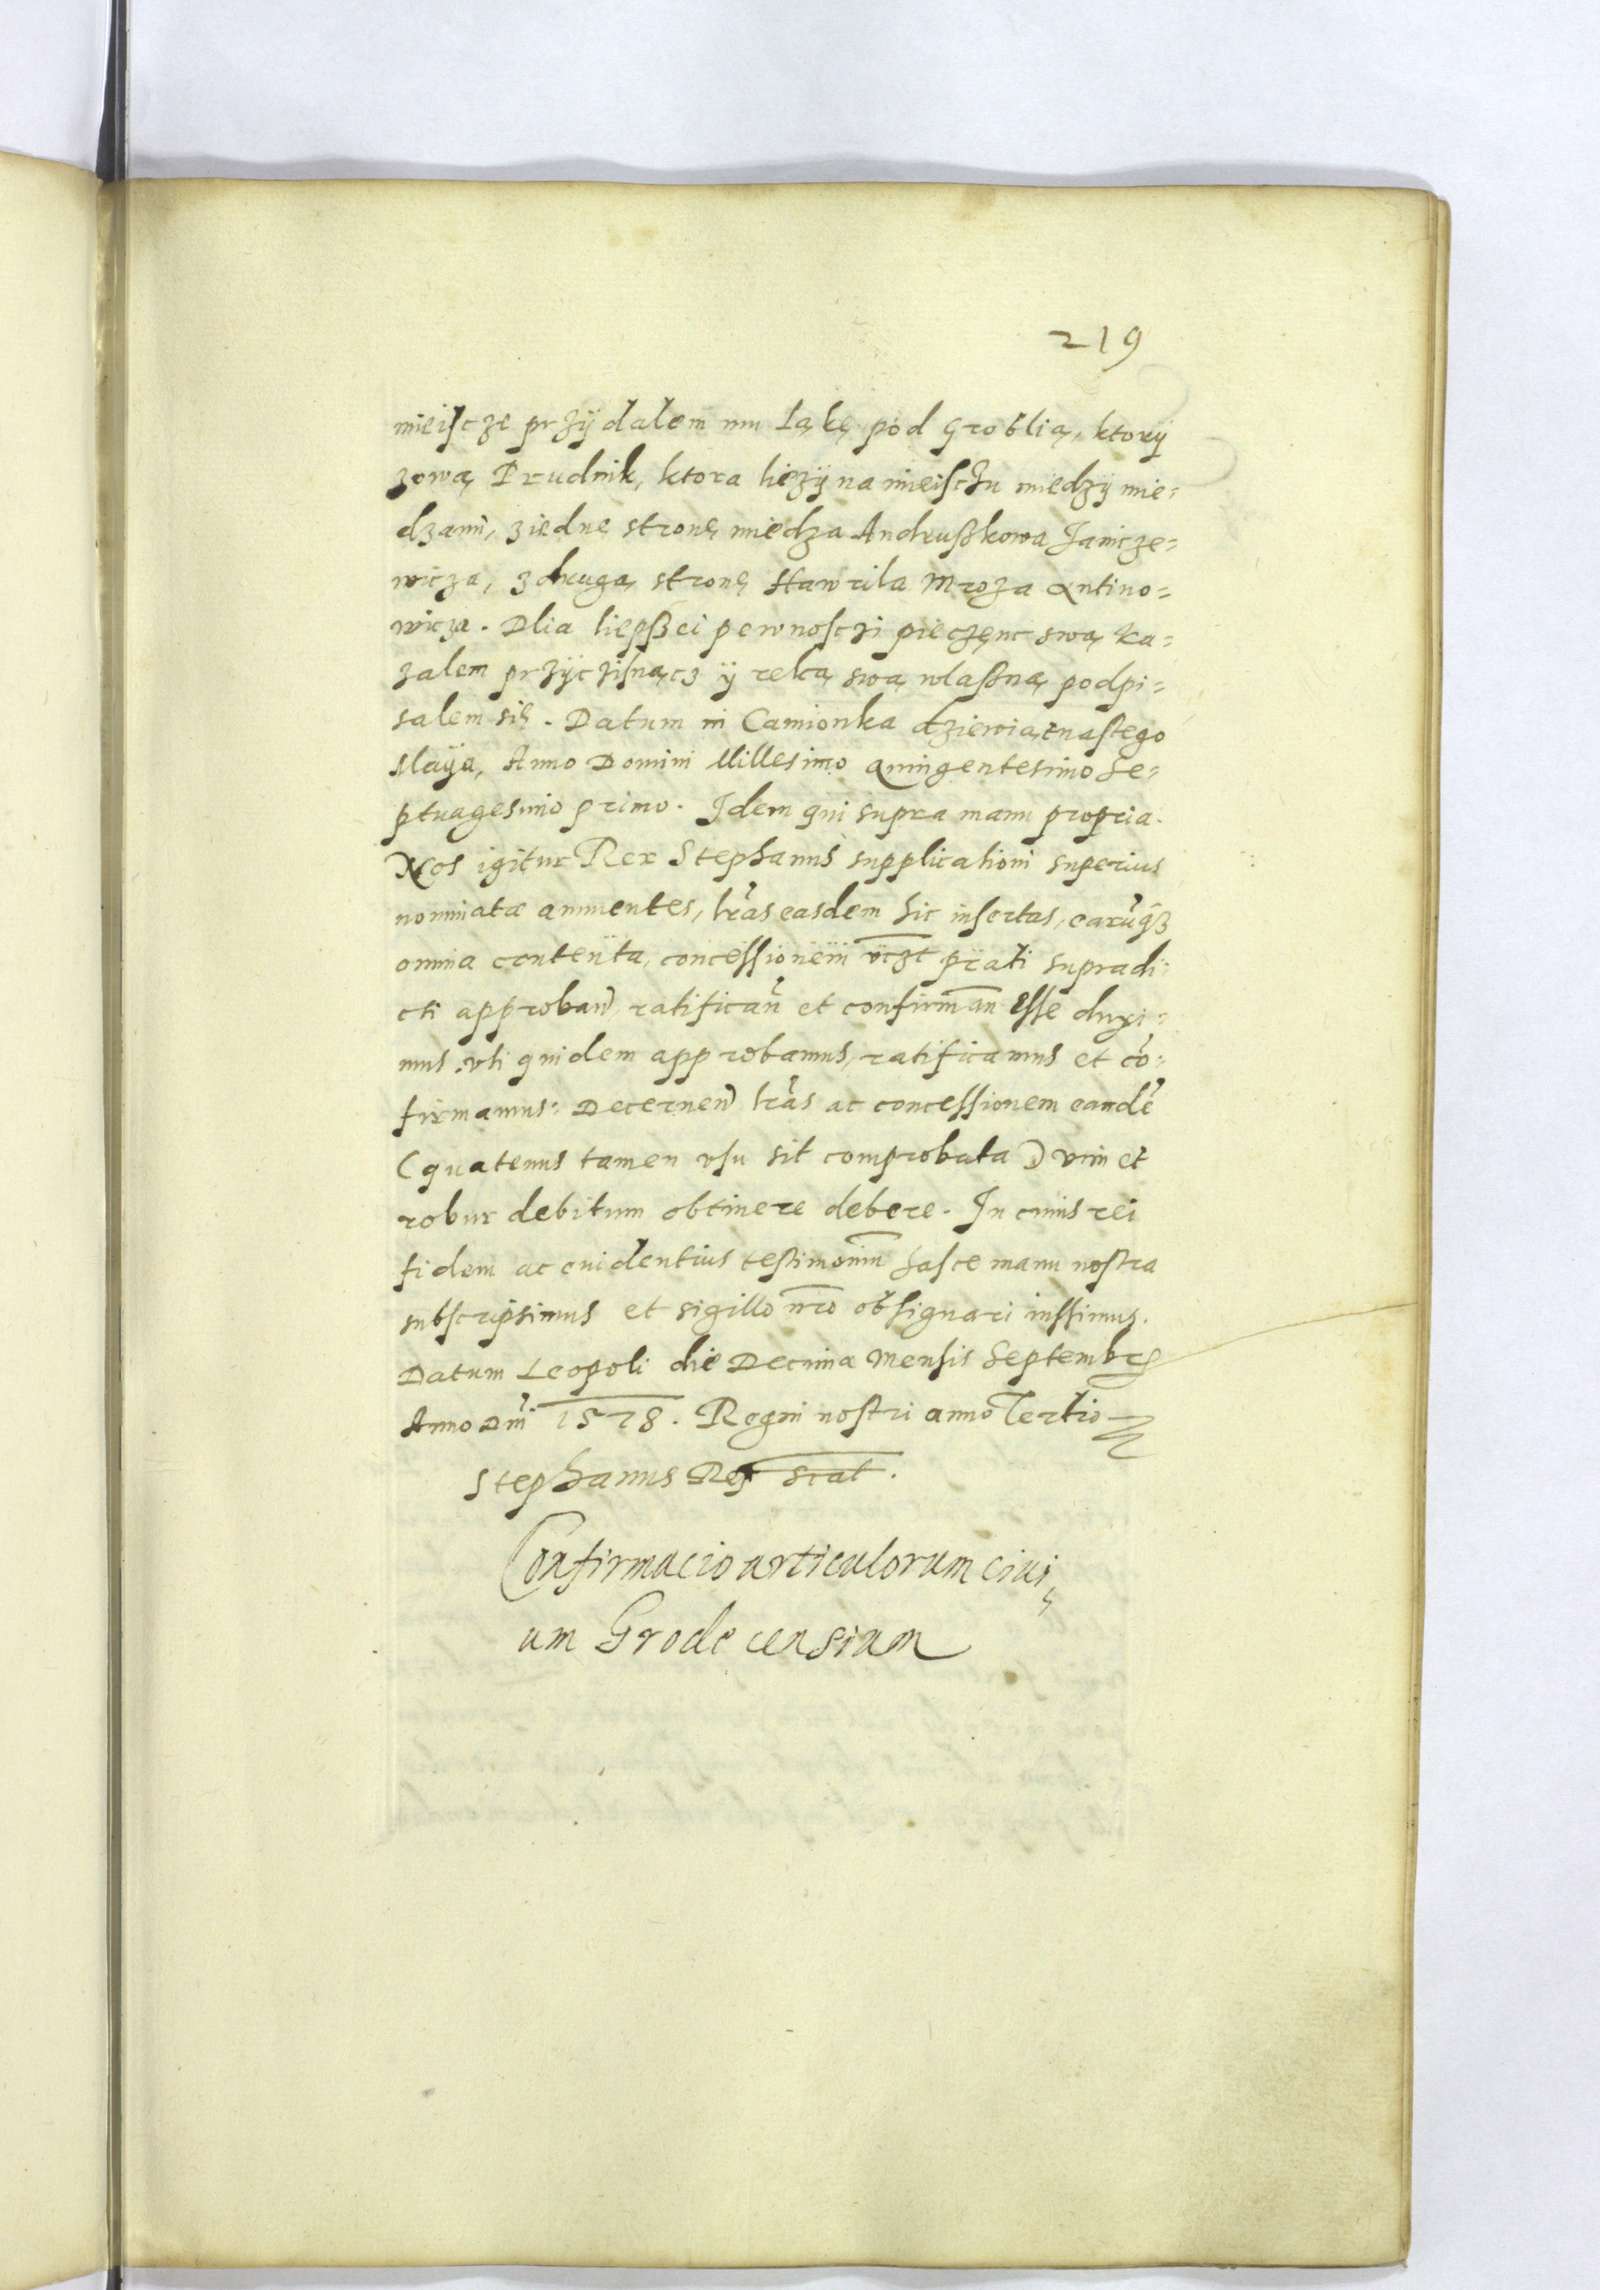 219
mieiscze przÿdalem mu Łąkę pod Groblią, ktorÿ
zową Prudnik, ktora lieżÿ na mieisczu miedzÿ mie-
dzami, ziednę stronę miedza Andruszkowa Janicze-
wicza, zdrugą stronę Hawrila Mroza Antino-
wicza. Dlia liepszei pewnosczi pieczęnc swą ka-
zalem przÿczisnącz ÿ reką swą własną podpi-
salem się. Datum in Camionka dziewiątnastego
Maÿa, Anno Domini Millesimo quingentesimo Se-
ptuagesimo primo. Idem qui supra manu propria.
Nos igitur Rex Stephanus supplicationi superius
nominatæ annuentes, lr̃as easdem hic insertas, earũq̃ȝ
omnia contenta, concessionem vczt prati supradi-
cti approban̄, ratifican̄ et confirman̄ esse duxi-
mus, vti quidem approbamus, ratificamus et cõ-
firmamus: Decernen̄ lr̃as ac concessionem eandẽ
(quatenus tamen vsu sit comprobata) vim et
robur debitum obtinere debere. In cuius rei
fidem ac euidentius testimonium hasce manu nostra
subscripsimus et sigillo nr̃o obsignari iussimus.
Datum Leopoli die Decima Mensis Septembr̃
Anno Dnĩ 1578. Regni nostri anno Tertio
Stephanus Rex scał.
Confirmacio articulorum ciui,
um Grodecensium